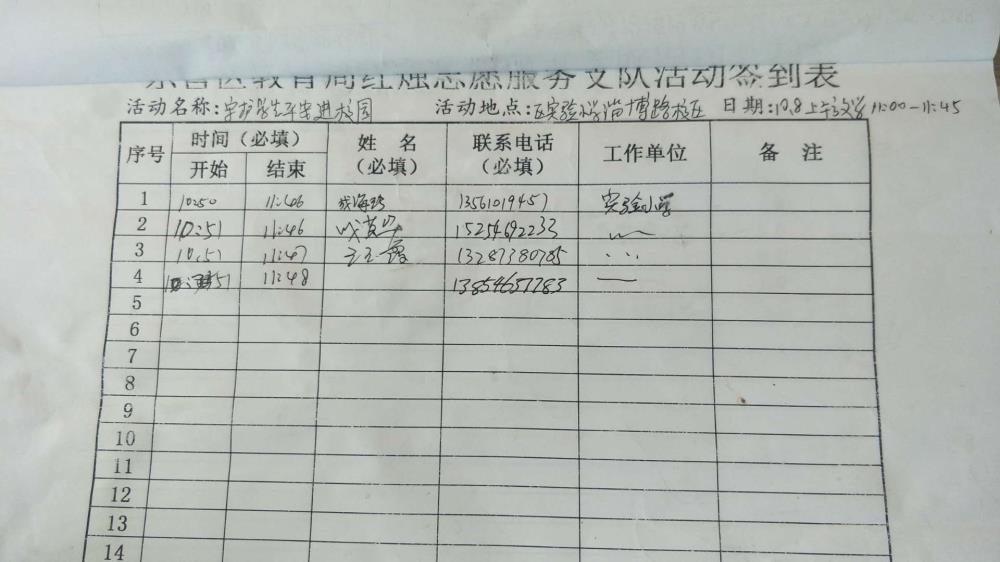 东营区教育局红烛志愿服务支队活动签到表
活动名称:守护学生平安进校园 活动地点:区实验小学淄博路校区 日期:10.8上午放学11:00-11:45
序号 时间(必填) 姓 名(必填) 联系电话(必填) 工作单位 备 注
开始 结束
1 10:50 11:46 13561019457 实验小学
2 10:51 11:46 15254692233
3 10:51 11:47 13287380785
4 11:48 13854657783
5
6
7
8
9
10
11
12
13
14